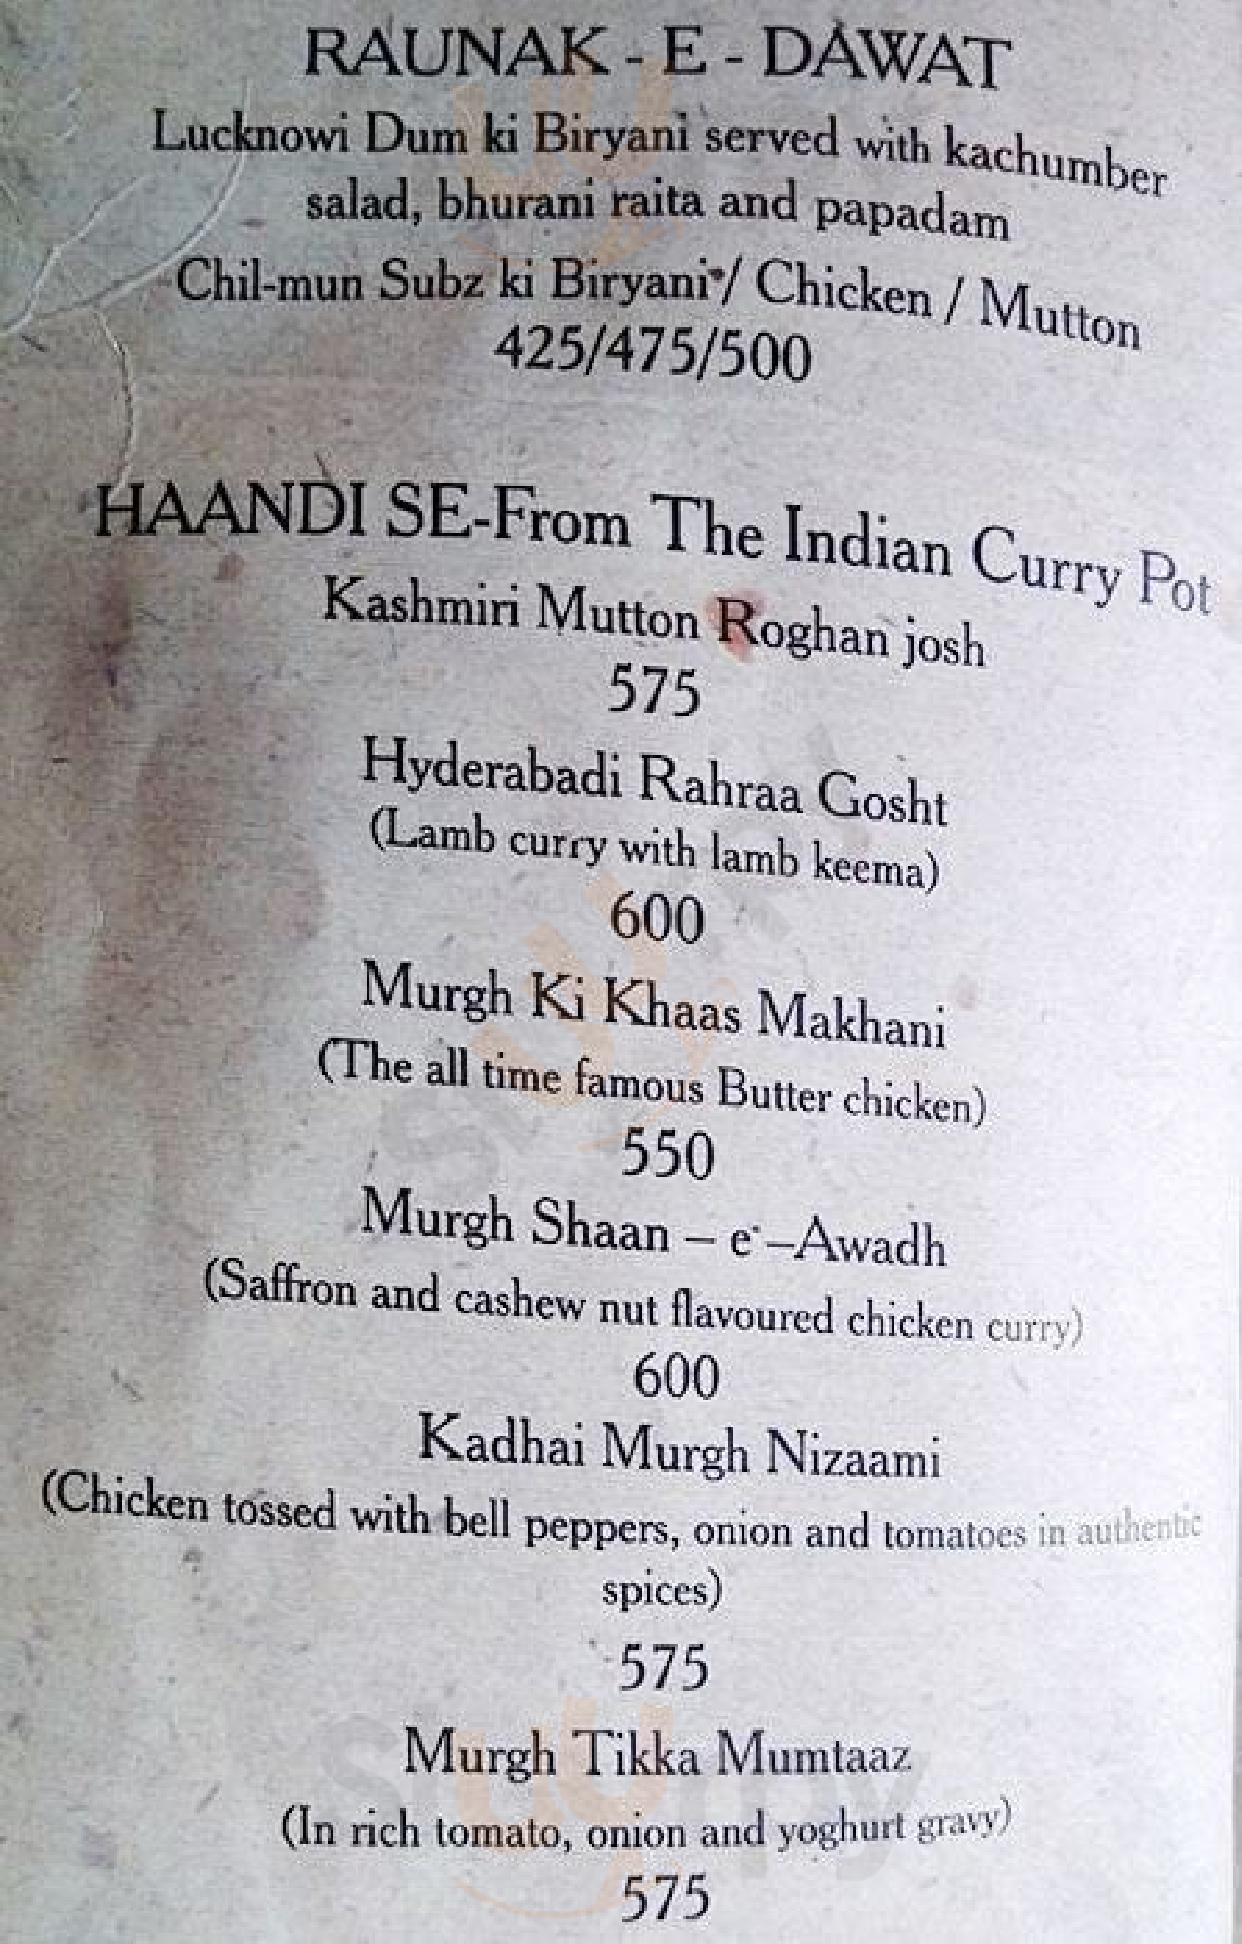 RAUNAK - E - DAWAT
Lucknowi Dum ki Biryani served with kachumber
salad, bhurani raita and papadam
Chil-mun Subz ki Biryani / Chicken / Mutton
425/475/500
HAANDI SE-From The Indian Curry Pot
Kashmiri Mutton Roghan josh
575
Hyderabadi Rahraa Gosht
(Lamb curry with lamb keema)
600
Murgh Ki Khaas Makhani
(The all time famous Butter chicken)
550
Murgh Shaan – e –Awadh
(Saffron and cashew nut flavoured chicken curry)
600
Kadhai Murgh Nizaami
(Chicken tossed with bell peppers, onion and tomatoes in authentic
spices)
575
Murgh Tikka Mumtaaz
(In rich tomato, onion and yoghurt gravy)
575